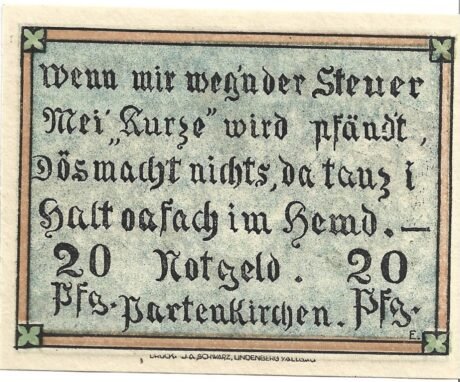 Wenn mir weg'nder Steuer
Mei „Kurze" wird pfändt,
Dös macht nichts, da tanz i
Halt oafach im Hemd.—
20 Notgeld. 20
Pfg. Partenkirchen. Pfg.
E.
DRUCK: J.A. SCHWARZ, LINDENBERG I/ALLGÄU